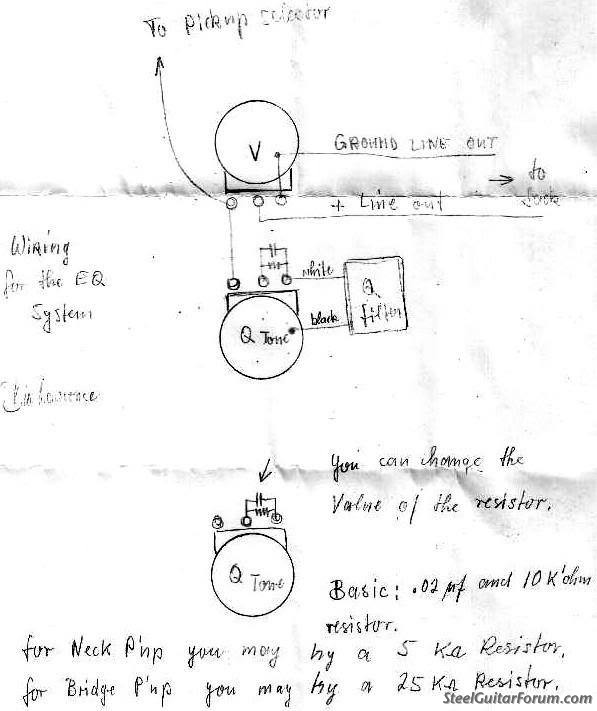 To pickup selector
V
GROUND LINE OUT
→ to
+ Line out
Wiring
for the EQ
System
white
Q
filter
black
Q Tone
you can change the
Value of the resistor.
Q Tone
Basic: .02 µf and 10 K'ohm
resistor.
for Neck P'up you may by a 5 KΩ Resistor.
for Bridge P'up you may by a 25 KΩ Resistor.
SteelGuitarForum.com